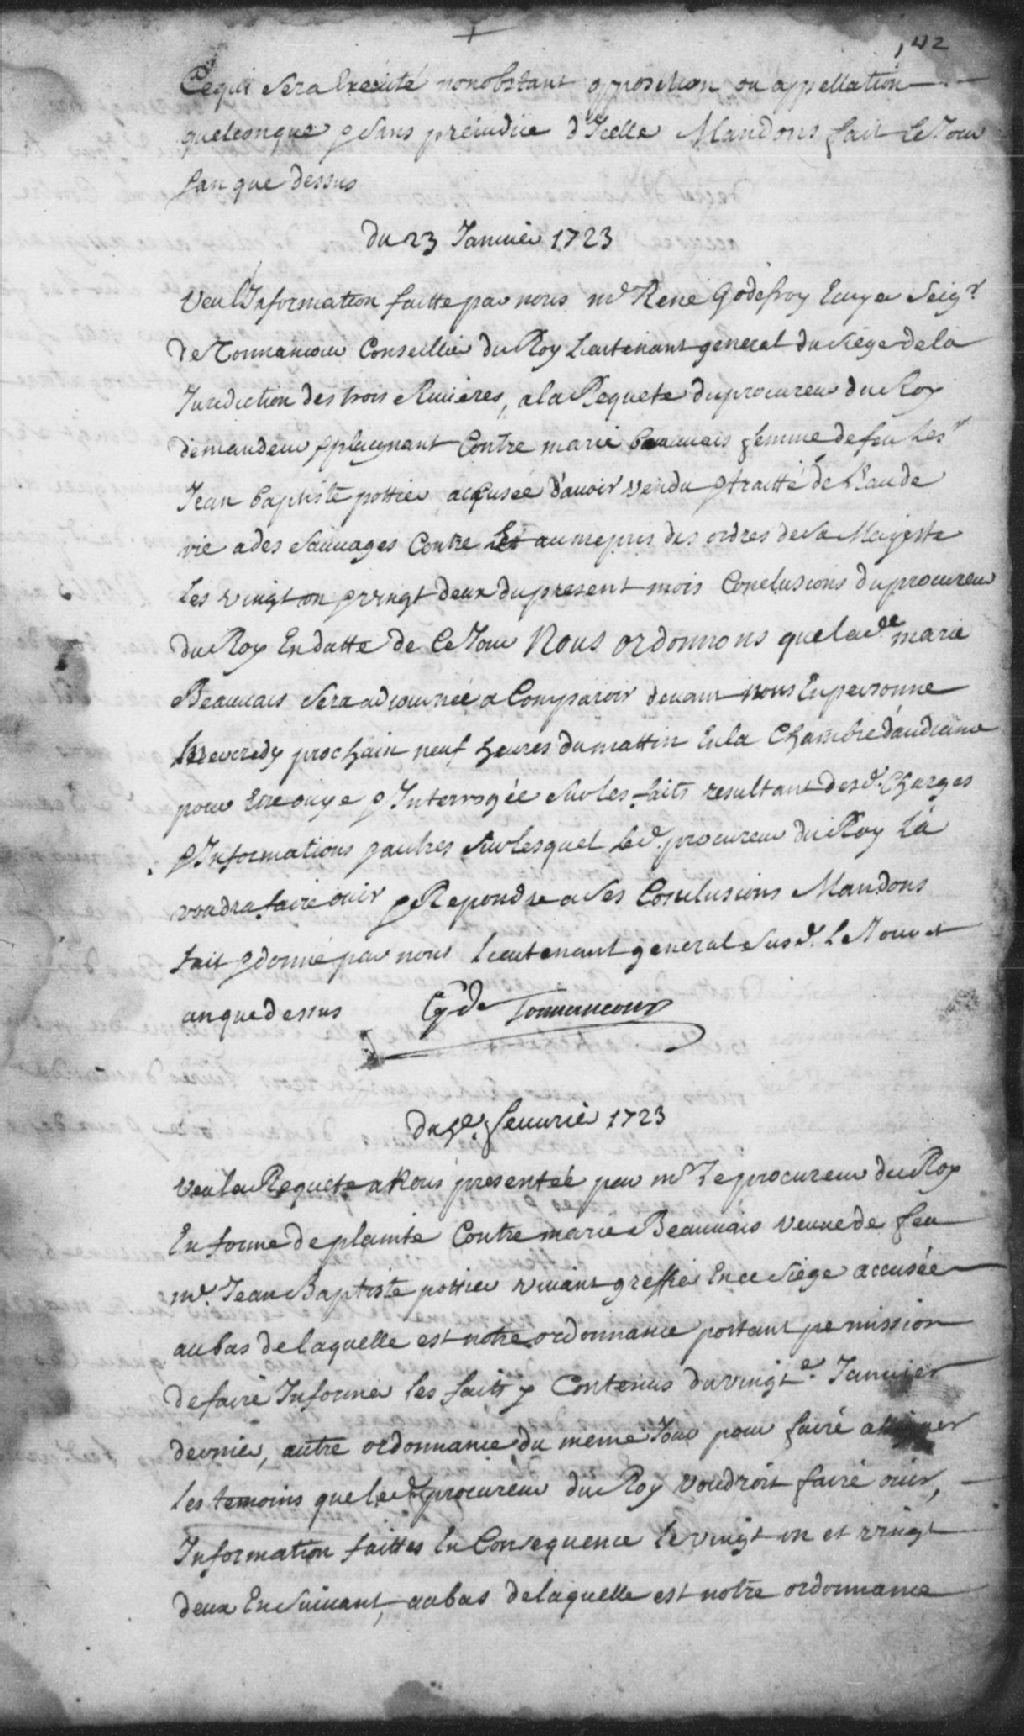 142
Cequi sera Executé nonobstant opposition ou appellation
quelconque & sans prejudice d'Icelle Mandons fait Le Jour
Lan que dessus
du 23 Janvier 1723
Veu l'Information faitte par nous mr René Godefroy Ecuyer Seigr
de Tonnancour Conseiller du Roy Lieutenant general du siege de la
Juridiction des trois Rivieres, a la Requete du procureur du Roy
demandeur & plaignant Contre marie beauvais femme de feu Le sr
Jean baptiste pottier accusée d'avoir vendu & traitté de L'eau de
vie a des sauvages Contre et au mepris des ordres de sa Majesté
Les vingt un & vingt deux du present mois Conclusions du procureur
du Roy En datte de Ce Jour Nous ordonnons que lade marie
Beauvais sera adjournée a Comparoir devant nous En personne
Mecredy prochain neuf heures du mattin En la Chambre d'audiance
pour Etre ouye & Interrogée sur les faits resultant desd. Charges
& Informations & autres sur lesquel Led. procureur du Roy La
voudra faire ouir & Repondre a ses Conclusions Mandons
fait & donné par nous Lieutenant general susd. Le Jour et
an que dessus G de Tonnancour
du 5e. fevrier 1723
Veu la Requete a Nous presentée par mr le procureur du Roy
En forme de plainte Contre marie Beauvais veuve de feu
mr. Jean Baptiste pottier vivant greffier En ce siege accusée
au bas de laquelle est notre ordonnance portant permission
de faire Informer les faits y Contenus du vingte. Janvier
dernier, autre ordonnance du meme Jour pour faire assigner
les temoins que led. procureur du Roy voudroit faire ouir,
Information faittes En Consequence le vingt un et vingt
deux En suivant, au bas de laquelle est notre ordonnance